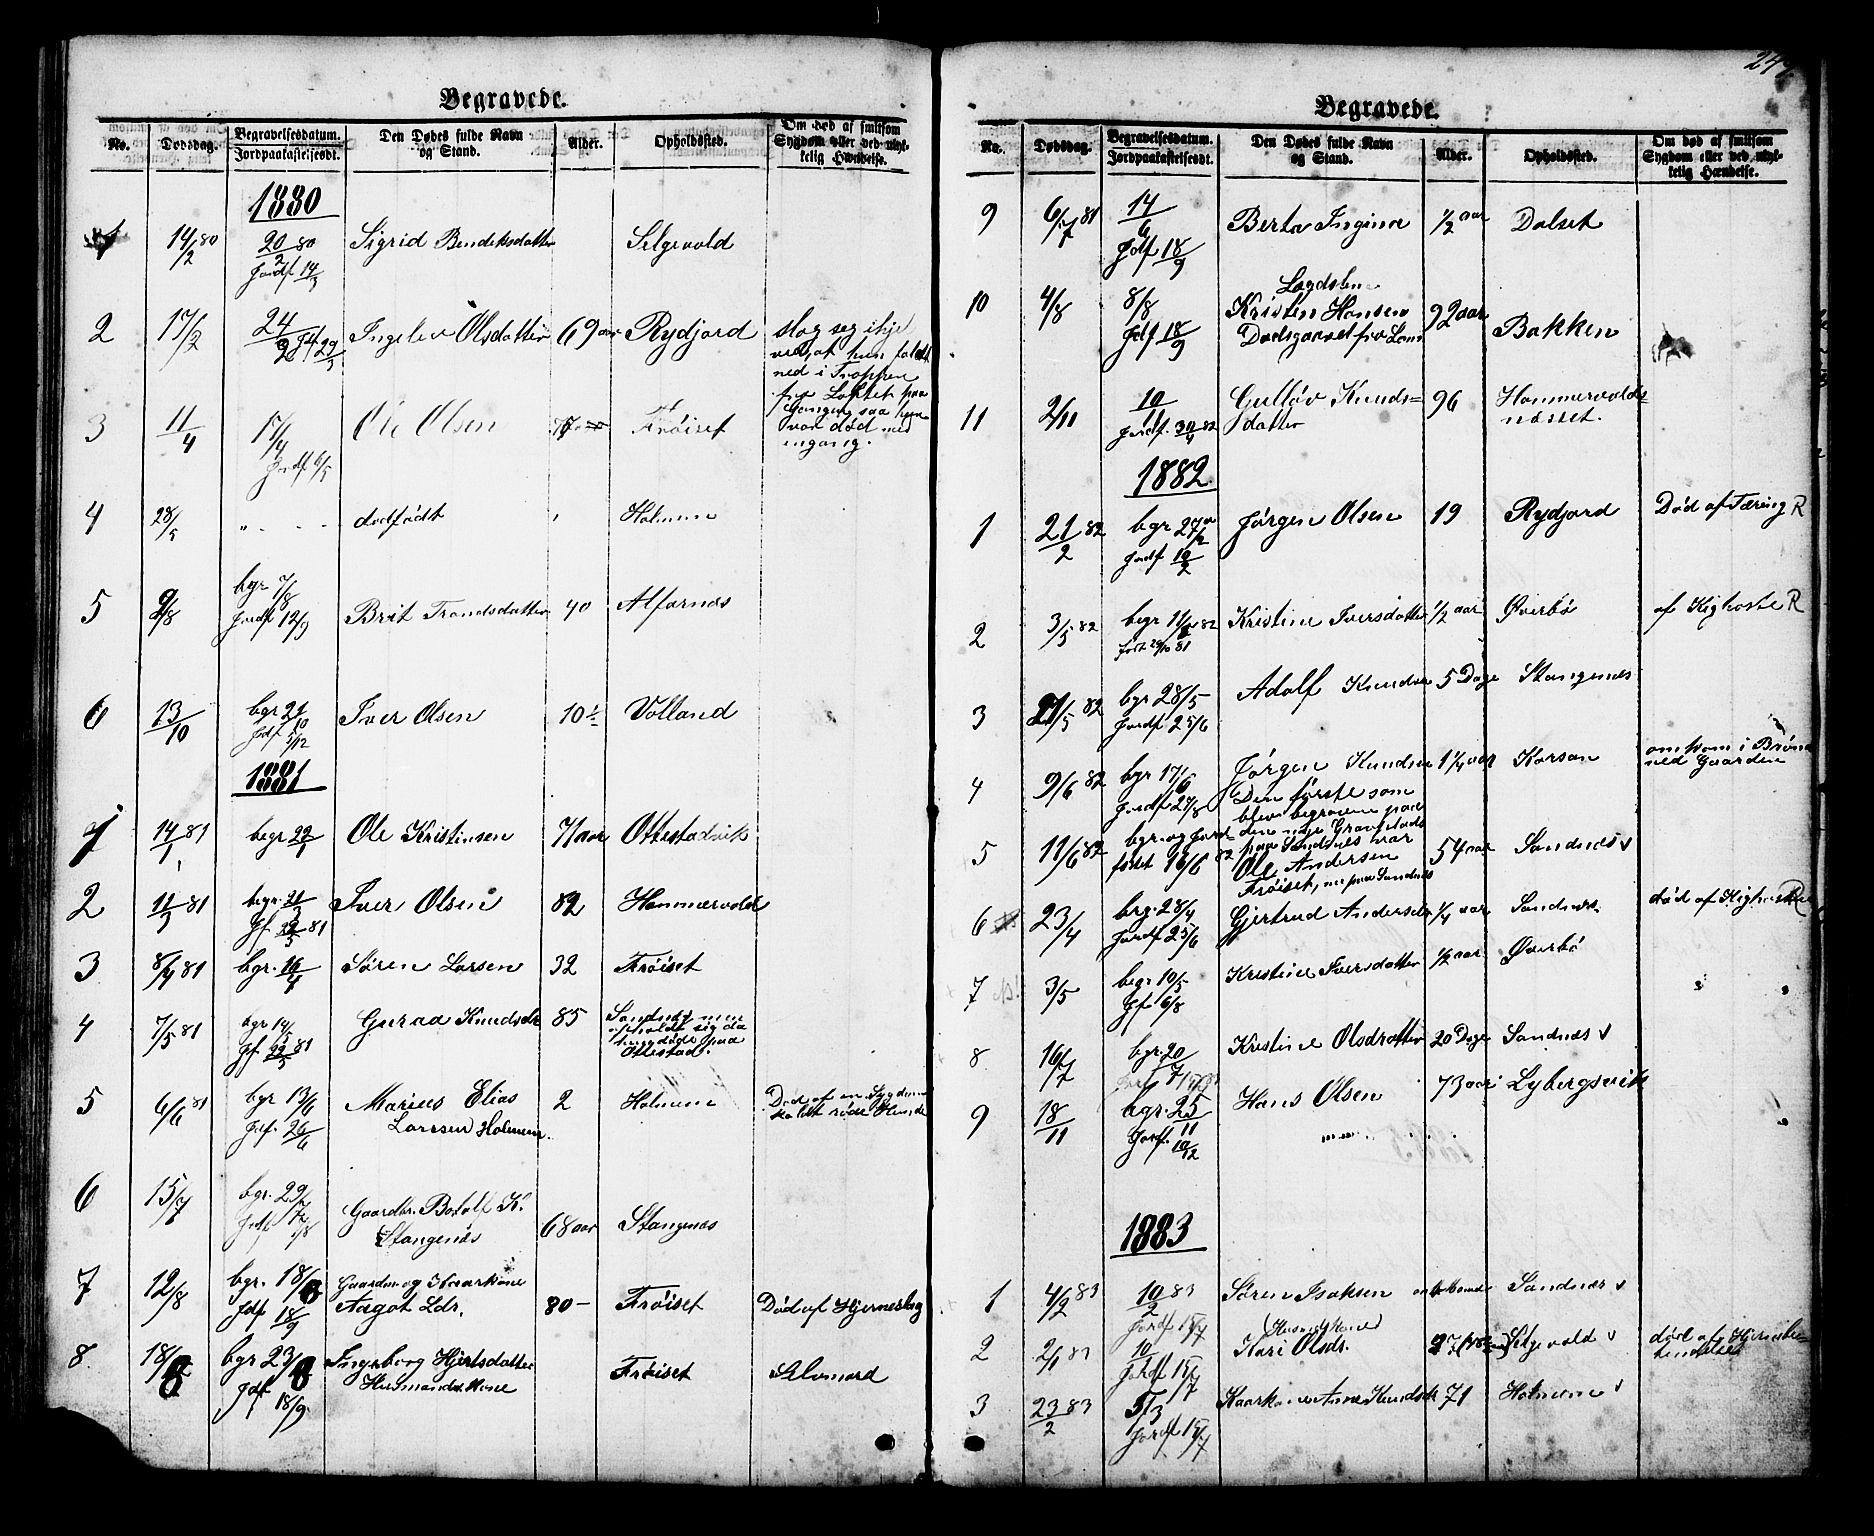 Begravede.
No. Dødsdag. Begravelsesdatum. Jordpaakastelsesdt. Den Dødes fulde Navn og Stand. Alder. Opholdssted. Om død af smitsom Sygdom eller ved ulykkelig Hændelse.
1880
1 14/2 80 20/2 80 Sigrid Bendiksdatter Selgevold
Jordf 14/3
2 17/2 24/2 Ingelev Olsdatter 69 aar Rydjord slog seg ihjel
ved at hun faldt
ned i Trappen
fra Loftet paa
Gangen saa hun
var død med
engang.
3 11/4 17/4 Ole Olsen Frøiset
Jordf 6/5
4 28/5 " - - - dødfødt Holmem
5 2/8 bgr 7/8 Brit Trondsdatter 40 Alfarnæs
Jordf 12/9
6 13/10 bgr 21/10 Iver Olsen 10 1/2 Volland
Jdf 5/12
1881
1 14/1 81 begr 22/1 Ole Kristensen 71 aar Ottestadvik
2 11/3 81 begr. 21/3 Iver Olsen 82 Hammervold
Jf 22/5 81
3 8/4 81 bgr. 16/4 Søren Larsen 32 Frøiset
4 7/5 81 bgr 14/5 Guraa Knudsdr 85 Sandnes men
Jf 22/5 81 opholdt sig da
hun døde paa
Ottestad.
5 6/6 81 bgr 13/6 Marius Elias 2 Holmem Død af en Sygdom
Jdf. 26/6 Larssen Holmem. kaldt røde Hunde
6 15/7 bgr. 23/7 Gaardbr. Botolf K. 68 aar Stangenæs
Stangenæs
7 12/8 bgr. 18/8 Gaardm og Kaarkone
Jdf 18/9 Aagot Ldr. 80 — Frøiset Død af Hjerneslag
8. 18/8 bgr 23/8 Ingeborg Hjertsdatter Frøiset Selvmord
Jdf 18/9. Husmandskone
Begravede.
No. Dødsdag. Begravelsesdatum. Jordpaakastelsesdt. Den Dødes fulde Navn og Stand. Alder. Opholdssted. Om død af smitsom Sygdom eller ved ulykkelig Hændelse.
9 6/7 81 14/6 Berta Ingina 1/2 aar Dalset
Jdf 18/9
10 4/8 8/8 Lægdslem
Kristen Hansen 92 aar Bakken
Jdf 18/9
11 2/11 10/11 Gulløv Knuds- 96 Hammervolds-
Jordf. 30/4 82 datter næsset.
1882
1 21/2 82 bgr 27/2 Jørgen Olsen 19 Rydjord Død af Tæring R
2 3/5 82 begr 14/5 82 Kristine Iversdatter 1/2 aar Øverbø af Kighoste R
født 29/10 81
3 21/5 82 bgr 28/5 Adolf Knudsen 5 Dage Stangenæs
Jordf. 25/6
4 9/6 82 bgr 17/6 Jørgen Knudsen 1 1/4 aar Korsan omkom i Brønd
ved Gaarden
Den første som
blev begraven paa
den nye Gravplads
paa Sandnes var
5 11/6 82 bgr. og Jord- Ole Andersen 54 aar Sandnes v
fæstet 16/6 82 Frøiset, nu paa Sandnes
6 23/4 brg. 28/4 Gjertrud Andersdr 1/4 aar Sandnæs. død af Kighoste R
Jordf 25/6
7 3/5 begr 10/5 Kristine Iversdatter 1/2 aar Øverbø
Jf. 6/8
8 16/7 bgr. 20/7 Kristine Olsdatter 20 Dage Sandnæs v
9 18/11 bgr. 25/11 Hans Olsen 73 aar Lybergsvik
Jordf. 10/12
1883
1 4/2 83 10/2 83 Søren Isaksen Sandnæs v
Jordf 15/7
2 2/1 83 10 (Husmdskone) Kari Olsdr. Selgevold v død af Hjernebe-
Jordf 15/7 tændelse
3 23/2 83 5/3 Kaarkone Anne Knudsdr 71 Holmeme v
Jordf 15/7